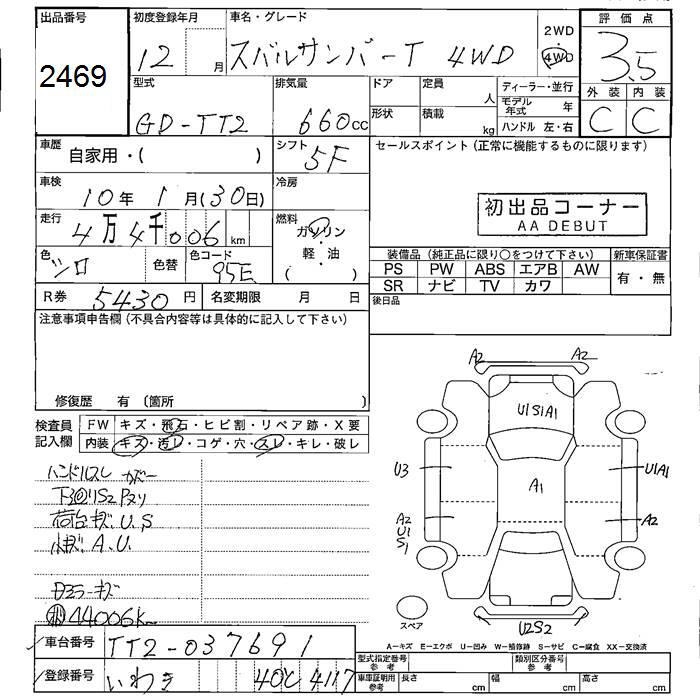 出品番号 初度登録年月 車名・グレード 2WD 評価点
2469 12 月 スバルサンバーT 4WD 4WD 3.5
型式 排気量 ドア 定員 人 ディーラー・並行 外装 内装
GD-TT2 660cc 形状 積載 kg モデル年式 年 C C
ハンドル 左・右
車歴 自家用・( ) シフト 5F セールスポイント(正常に機能するものに限ります)
車検 10年 1月(30日) 冷房
初出品コーナー
AA DEBUT
走行 4万4千006km 燃料 ガソリン
軽・油
( )
色 シロ 色替 色コード 95E
装備品(純正品に限り○をつけて下さい) 新車保証書
PS PW ABS エアB AW 有・無
SR ナビ TV カワ
R券 5430円 名変期限 月 日 後日品
注意事項申告欄(不具合内容等は具体的に記入して下さい)
修復歴 有(箇所 )
検査員 FW キズ・飛石・ヒビ割・リペア跡・X要
記入欄 内装 キズ・汚レ・コゲ・穴・スレ・キレ・破レ
ハンドルスレ
荷台キズ U.S
A.U.
44006K
A2 A2
U1S1A1
U3 U1A1
A1
A2 A2
U1
S1
U2S2
スペア
A-キズ E-エクボ U-凹み W-補修跡 S-サビ C-腐食 XX-交換済
車台番号 TT2-037691 型式指定番号 参考 類別区分番号 参考
登録番号 いわき 40C 4117 車庫証明用 参考 長さ cm 幅 cm 高さ cm